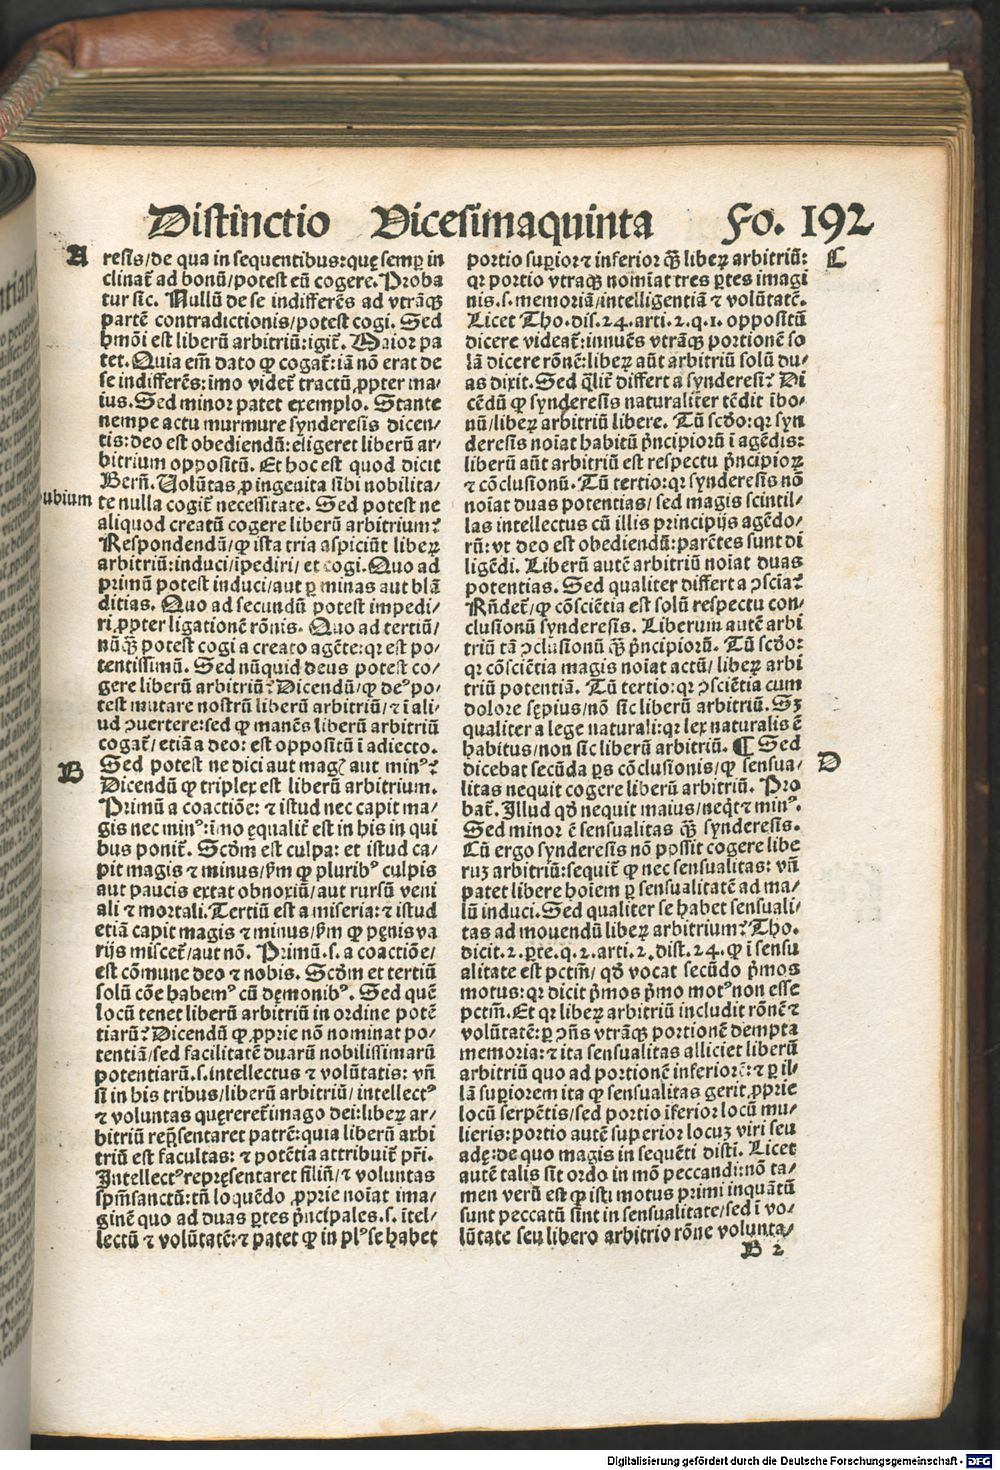 Distinctio Vicesimaquinta Fo. 192
A
resis/de qua in sequentibus:quę semꝑ in
clinat̃ ad bonũ/potest eũ cogere. Proba
tur sic. Nullũ de se indifferẽs ad vtrãqꝫ
partẽ contradictionis/potest cogi. Sed
hmõi est liberũ arbitriũ:igit̃. Maior pa
tet. Quia em̃ dato ꝙ cogat̃:iã nõ erat de
se indifferẽs:imo videt̃ tractũ ꝓpter ma/
ius. Sed minor patet exemplo. Stante
nempe actu murmure synderesis dicen/
tis:deo est obediendũ:eligeret liberũ ar/
bitrium oppositũ. Et hoc est quod dicit
Bern̄. Volũtas ꝓ ingenita sibi nobilita/
ubium
te nulla cogit̃ necessitate. Sed potest ne
aliquod creatũ cogere liberũ arbitrium?
Respondendũ/ꝙ ista tria aspiciũt liberꝝ
arbitriũ:induci/ĩpediri/ et cogi. Quo ad
primũ potest induci/aut ꝑ minas aut blã
ditias. Quo ad secundũ potest impedi/
ri ꝓpter ligationẽ rõnis. Quo ad tertiũ/
nũqꝫ potest cogi a creato agẽte:qꝛ est po/
tentissimũ. Sed nũquid deus potest co/
gere liberũ arbitriũ? Dicendũ/ꝙ deꝰ po/
test mutare nostrũ liberũ arbitriũ/⁊ ĩ ali/
ud ꝯuertere:sed ꝙ manẽs liberũ arbitriũ
cogat̃/etiã a deo: est oppositũ ĩ adiecto.
B
Sed potest ne dici aut magꝭ aut minꝰ?
Dicendũ ꝙ triplex est liberũ arbitrium.
Primũ a coactiõe: ⁊ istud nec capit ma/
gis nec minꝰ:ĩmo ęqualit̃ est in his in qui
bus ponit̃. Scđm est culpa: et istud ca/
pit magis ⁊ minus/ẜm ꝙ pluribꝰ culpis
aut paucis extat obnoxiũ/aut rursũ veni
ali ⁊ mortali. Tertiũ est a miseria:⁊ istud
etiã capit magis ⁊ minus/ẜm ꝙ pęnis va
rijs miscet̃/aut nõ. Primũ .s. a coactiõe/
est cõmune deo ⁊ nobis. Scđm et tertiũ
solũ cõe habemꝰ cũ dęmonibꝰ. Sed quẽ
locũ tenet liberũ arbitriũ in ordine potẽ
tiarũ? Dicendũ ꝙ ꝓprie nõ nominat po/
tentiã/sed facilitatẽ duarũ nobilissimarũ
potentiarũ .s. intellectus ⁊ volũtatis: vñ
si in his tribus/liberũ arbitriũ/intellectꝰ
⁊ voluntas quęreret̃ imago dei:liberꝝ ar/
bitriũ rep̃sentaret patrẽ:quia liberũ arbi
triũ est facultas: ⁊ potẽtia attribuit̃ p̃ri.
Intellectꝰ repręsentaret filiũ/⁊ voluntas
spm̃sanctũ:tñ loquẽdo ꝓprie noĩat ima/
ginẽ quo ad duas ꝑtes p̃ncipales .s. ĩtel/
lectũ ⁊ volũtatẽ:⁊ patet ꝙ in plꝰ se habet
C
portio suꝑior ⁊ inferior qꝫ liberꝝ arbitriũ:
qꝛ portio vtraqꝫ noĩat tres ꝑtes imagi
nis .s. memoriã/intelligentiã ⁊ volũtatẽ.
Licet Tho. dis. 24. arti. 2. q. 1. oppositũ
dicere videat̃:innuẽs vtrãqꝫ portionẽ so
lã dicere rõnẽ:liberꝝ aũt arbitriũ solũ du/
as dixit. Sed q̃lit̃ differt a synderesi? Di
cẽdũ ꝙ synderesis naturaliter tẽdit ĩ bo/
nũ/liberꝝ arbitriũ libere. Tũ scđo:qꝛ syn
deresis noĩat habitũ p̃ncipiorũ ĩ agẽdis:
liberũ aũt arbitriũ est respectu p̃ncipioꝝ
⁊ cõclusionũ. Tũ tertio:qꝛ synderesis nõ
noĩat duas potentias/ sed magis scintil/
las intellectus cũ illis principijs agẽdo/
rũ:vt deo est obediendũ:parẽtes sunt di
ligẽdi. Liberũ autẽ arbitriũ noĩat duas
potentias. Sed qualiter differt a ꝯscia?
Rñdet̃/ꝙ cõsciẽtia est solũ respectu con/
clusionũ synderesis. Liberum autẽ arbi
triũ tã ꝯclusionũ qꝫ p̃ncipiorũ. Tũ scđo:
qꝛ cõsciẽtia magis noĩat actũ/ liberꝝ arbi
triũ potentiã. Tũ tertio:qꝛ ꝯsciẽtia cum
dolore sępius/nõ sic liberũ arbitriũ. Sꝫ
qualiter a lege naturali:qꝛ lex naturalis ẽ
habitus/non sic liberũ arbitriũ. ¶ Sed
D
dicebat secũda ꝑs cõclusionis/ꝙ sensua/
litas nequit cogere liberũ arbitriũ. Pro
bat̃. Illud qđ nequit maius/neqꝫ ⁊ minꝰ.
Sed minor ẽ sensualitas qꝫ synderesis.
Cũ ergo synderesis nõ possit cogere libe
ruꝫ arbitriũ:sequit̃ ꝙ nec sensualitas: vñ
patet libere hoiem ꝑ sensualitatẽ ad ma/
lũ induci. Sed qualiter se habet sensuali/
tas ad mouendũ liberꝝ arbitrium? Tho.
dicit. 2. ꝑte. q. 2. arti. 2. dist. 24. ꝙ ĩ sensu
alitate est pctm̃/ qđ vocat secũdo p̃mos
motus:qꝛ dicit p̃mos p̃mo motꝰ non esse
pctm̃. Et qꝛ liberꝝ arbitriũ includit rõnẽ ⁊
volũtatẽ:ꝑ ꝯñs vtrãqꝫ portionẽ dempta
memoria:⁊ ita sensualitas alliciet liberũ
arbitriũ quo ad portionẽ inferiorẽ:⁊ ꝑ il/
lã suꝑiorem ita ꝙ sensualitas gerit ꝓprie
locũ serpẽtis/sed portio ĩferior locũ mu/
lieris:portio autẽ superior locuꝫ viri seu
adę:de quo magis in sequẽti disti. Licet
autẽ talis sit ordo in mõ peccandi:nõ ta/
men verũ est ꝙ isti motus primi inquãtũ
sunt peccatũ sint in sensualitate/sed ĩ vo/
lũtate seu libero arbitrio rõne volunta/
B 2
Digitalisierung gefördert durch die Deutsche Forschungsgemeinschaft - DFG